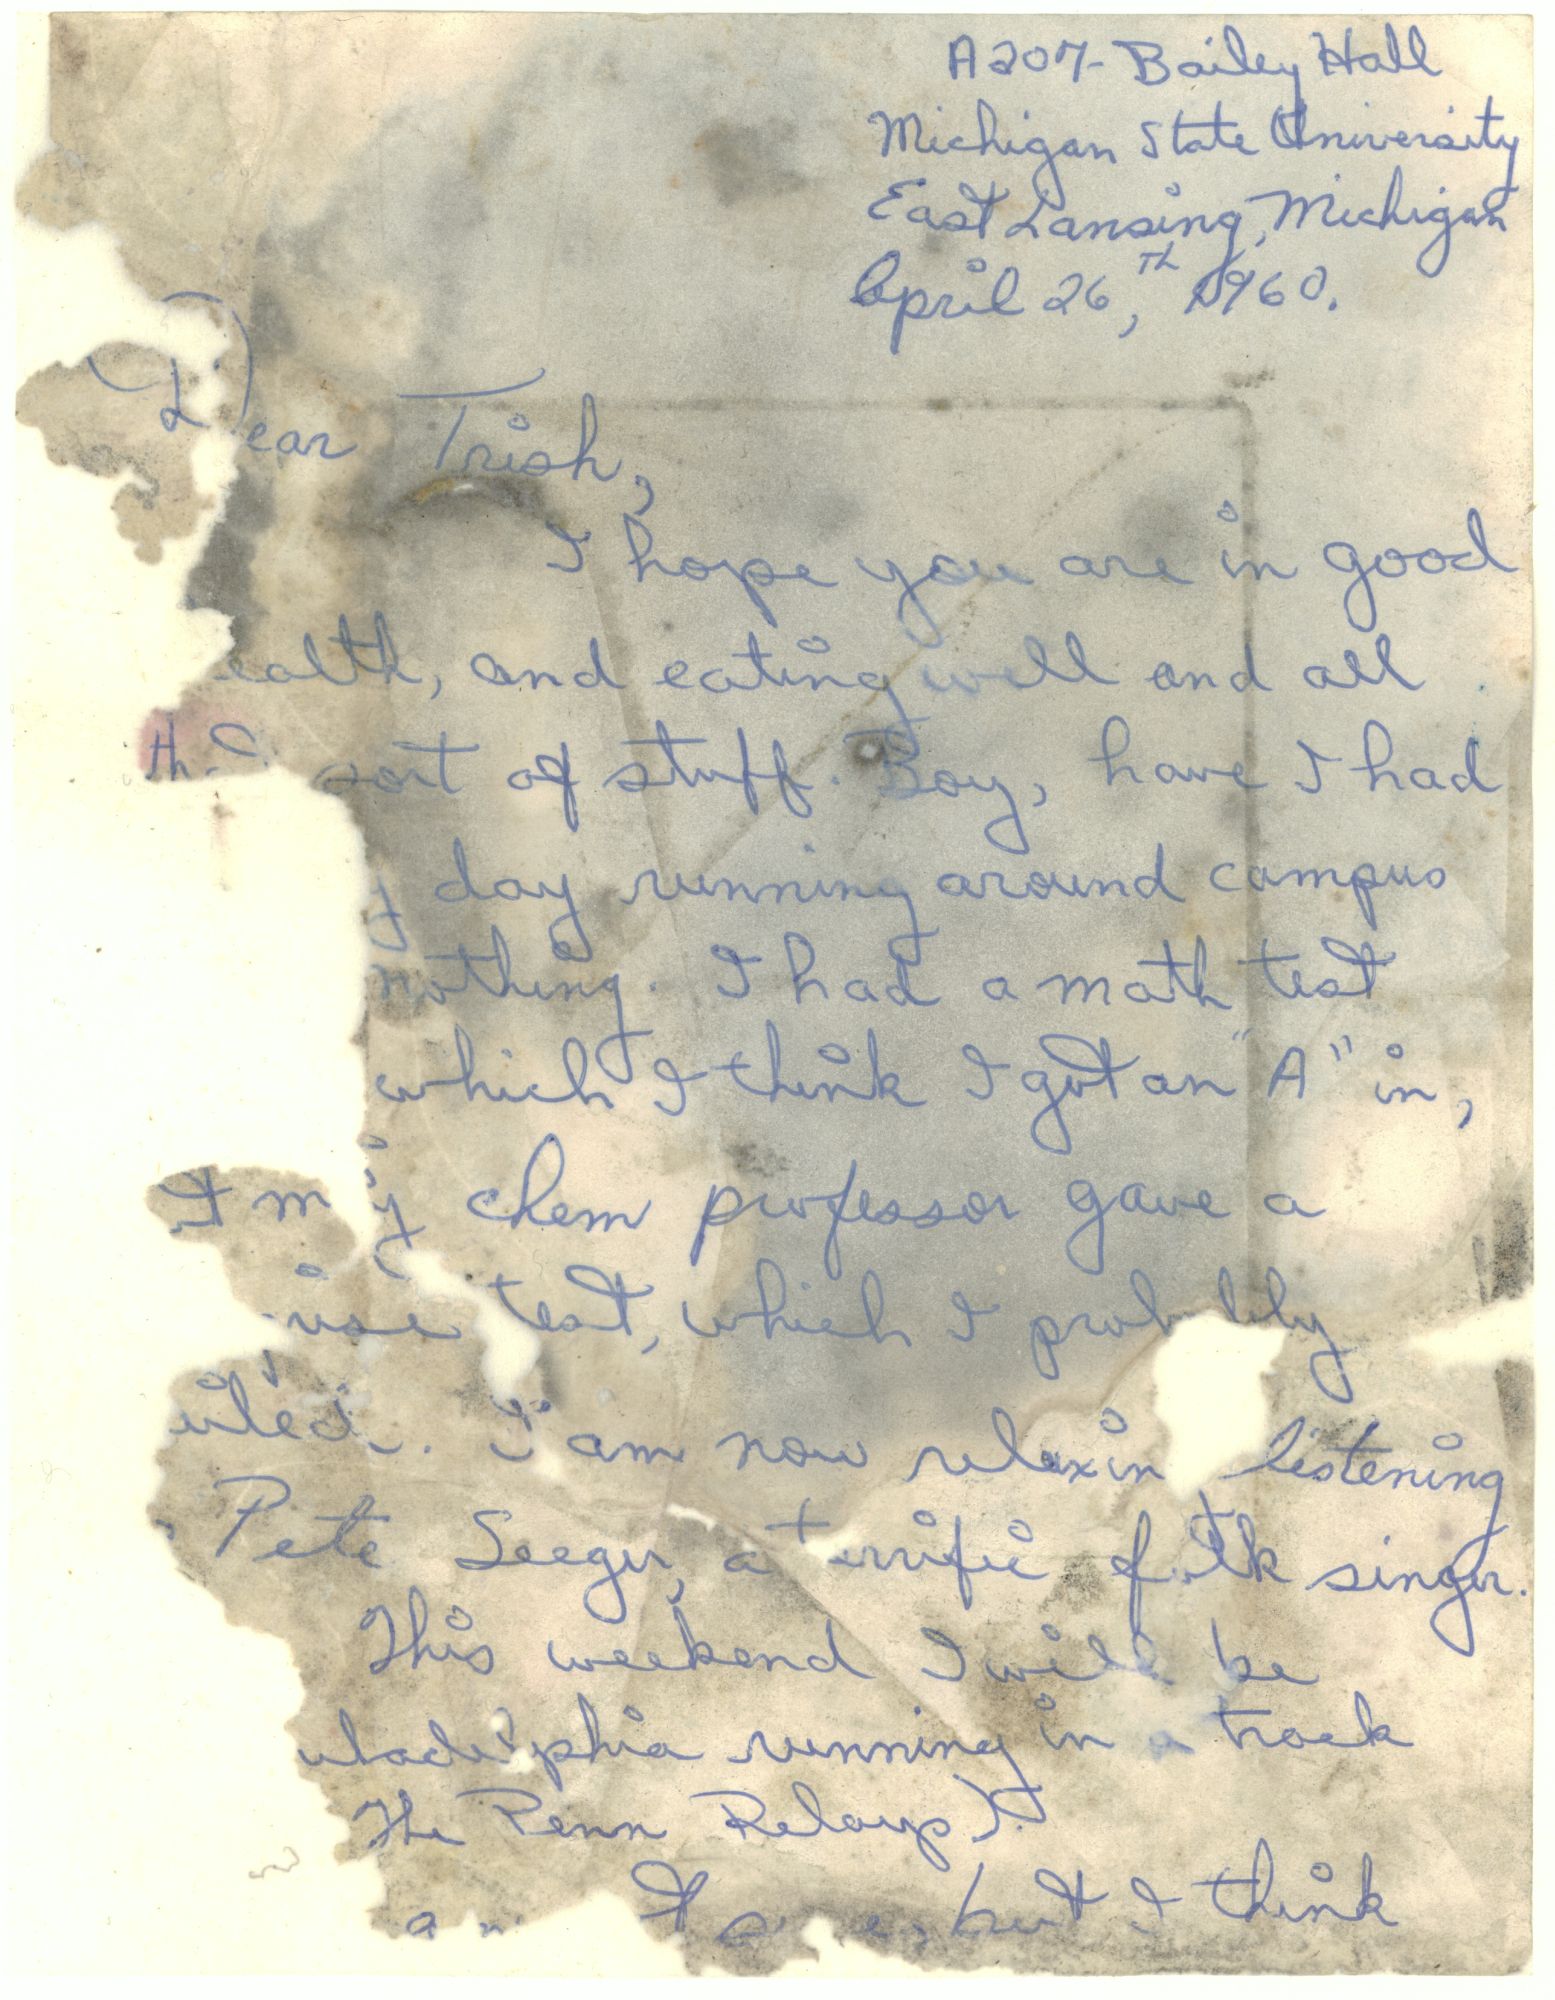 A207- Bailey Hall
Michigan State University
East Lansing, Michigan
April 26, Th 1960.
Dear Trish,
I hope you are in good
ealth, and eating well and all
sort of stuff. Boy, have I had
day running around campus
nothing. I had a math test
which I think I got an "A" in,
my chem professor gave a
test, which I probably
I am now relaxin listening
Pete Seeger, a terrific folk singer.
This weekend I will be
ladelphia running in a track
The Penn Relays).
but I think